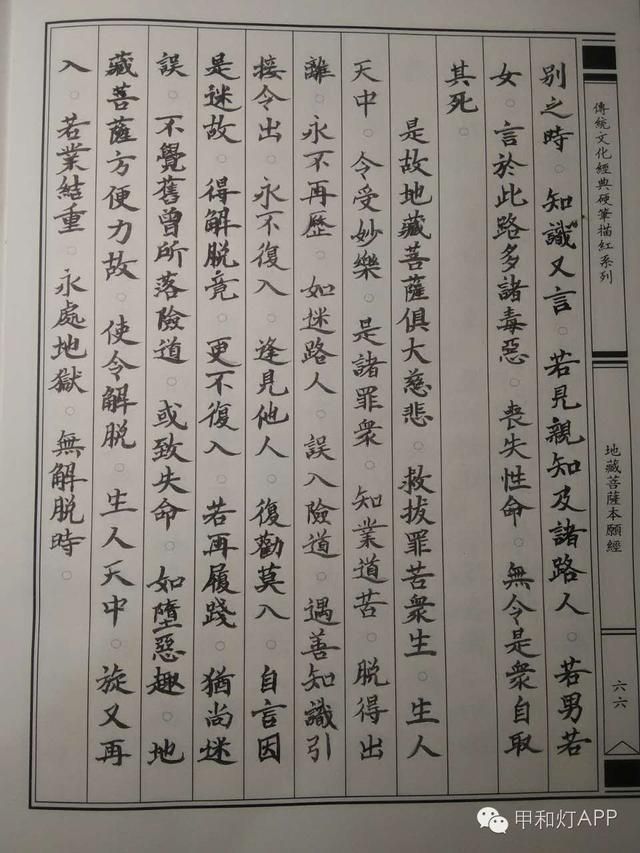 別之時。知識又言。若見親知及諸路人。若男若
女。言於此路多諸毒惡。喪失性命。無令是衆自取
其死。
是故地藏菩薩俱大慈悲。救拔罪苦衆生。生人
天中。令受妙樂。是諸罪衆。知業道苦。脱得出
離。永不再歷。如迷路人。誤入險道。遇善知識引
接令出。永不復入。逢見他人。復勸莫入。自言因
是迷故。得解脱竟。更不復入。若再履踐。猶尚迷
誤。不覺舊曾所落險道。或致失命。如墮惡趣。地
藏菩薩方便力故。使令解脱。生人天中。旋又再
入。若業結重。永處地獄。無解脱時。
傳統文化經典硬筆描紅系列
地藏菩薩本願經
六六
甲和灯APP